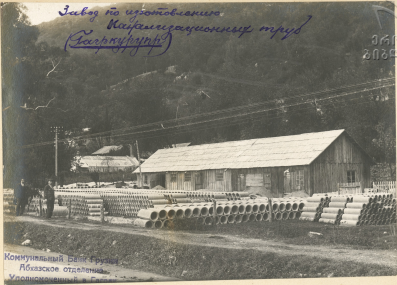 Завод по изготовлению
Канализационных труб
(Гагркурупр)
Коммунальный Банк Грузии
Абхазское отделение
Уполномоченный в